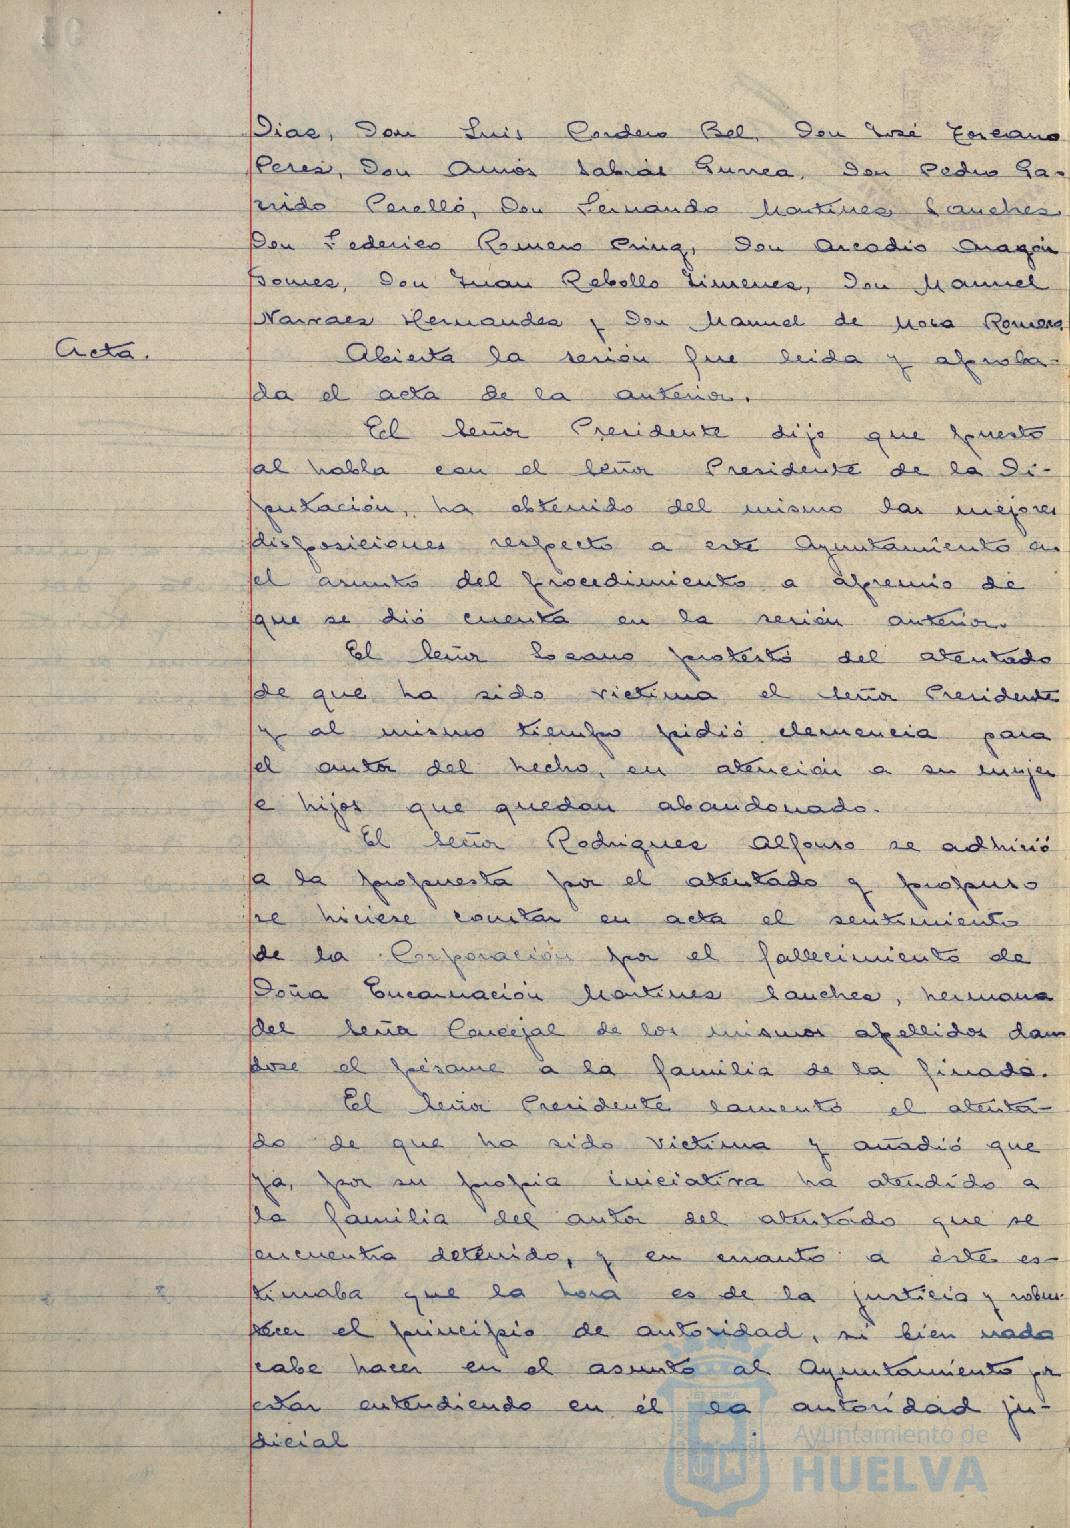 Dias, Don Luis Cordero Bel, Don José Toscano
Peres, Don Amós Sabrás Gurrea, Don Pedro Ga-
rrido Perelló, Don Fernando Martines Sanches
Don Federico Romero Pring, Don Arcadio Aragón
Gomes, Don Juan Rebollo Jimenes, Don Manuel
Narvaes Hernandes y Don Manuel de Mora Romero
Acta.
Abierta la sesión fue leida y aproba-
da el acta de la anterior.
El Señor Presidente dijo que puesto
al habla con el Señor Presidente de la Di-
putación, ha obtenido del mismo las mejores
disposiciones respecto a este Ayuntamiento en
el asunto del procedimiento a apremio de
que se dió cuenta en la sesión anterior.
El Señor protestó del atentado
de que ha sido victima el Señor Presidente
y al mismo tiempo pidió clemencia para
el autor del hecho, en atención a su mujer
e hijos que quedan abandonado.
El Señor Rodrigues Alfonso se adhirió
a la propuesta por el atentado y propuso
se hiciese constar en acta el sentimiento
de la Corporación por el fallecimiento de
Doña Encarnación Martines Sanches, hermana
del Señor Concejal de los mismos apellidos dan
dose el pésame a la familia de la finada.
El Señor Presidente lamentó el atenta-
do de que ha sido victima y añadió que
ya, por su propia iniciativa ha atendido a
la familia del autor del atentado que se
encuentra detenido, y en cuanto a éste es-
timaba que la hora es de la justicia y robus-
tecer el principio de autoridad, si bien nada
cabe hacer en el asunto al Ayuntamiento por
estar entendiendo en él la autoridad ju-
dicial
Ayuntamiento de
HUELVA